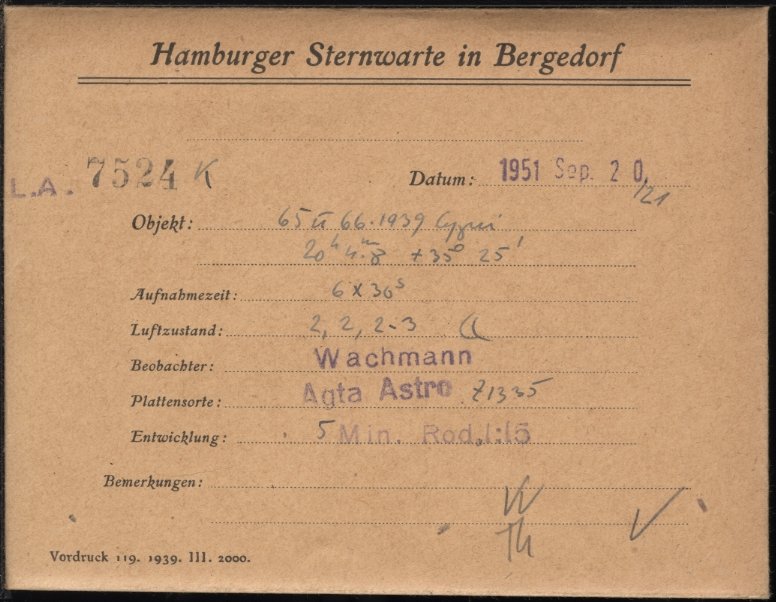 Hamburger Sternwarte in Bergedorf
L.A. 7524 K
Datum: 1951 Sep. 20/21
Objekt: 65 u 66.1939 Cygni
20h 4m.8 +35° 25'
Aufnahmezeit: 6 x 30s
Luftzustand: 2, 2, 2-3 a
Beobachter: Wachmann
Plattensorte: Agfa Astro Z1335
Entwicklung: 5 Min. Rod. 1:15
Bemerkungen:
Th
Vordruck 119. 1939. III. 2000.